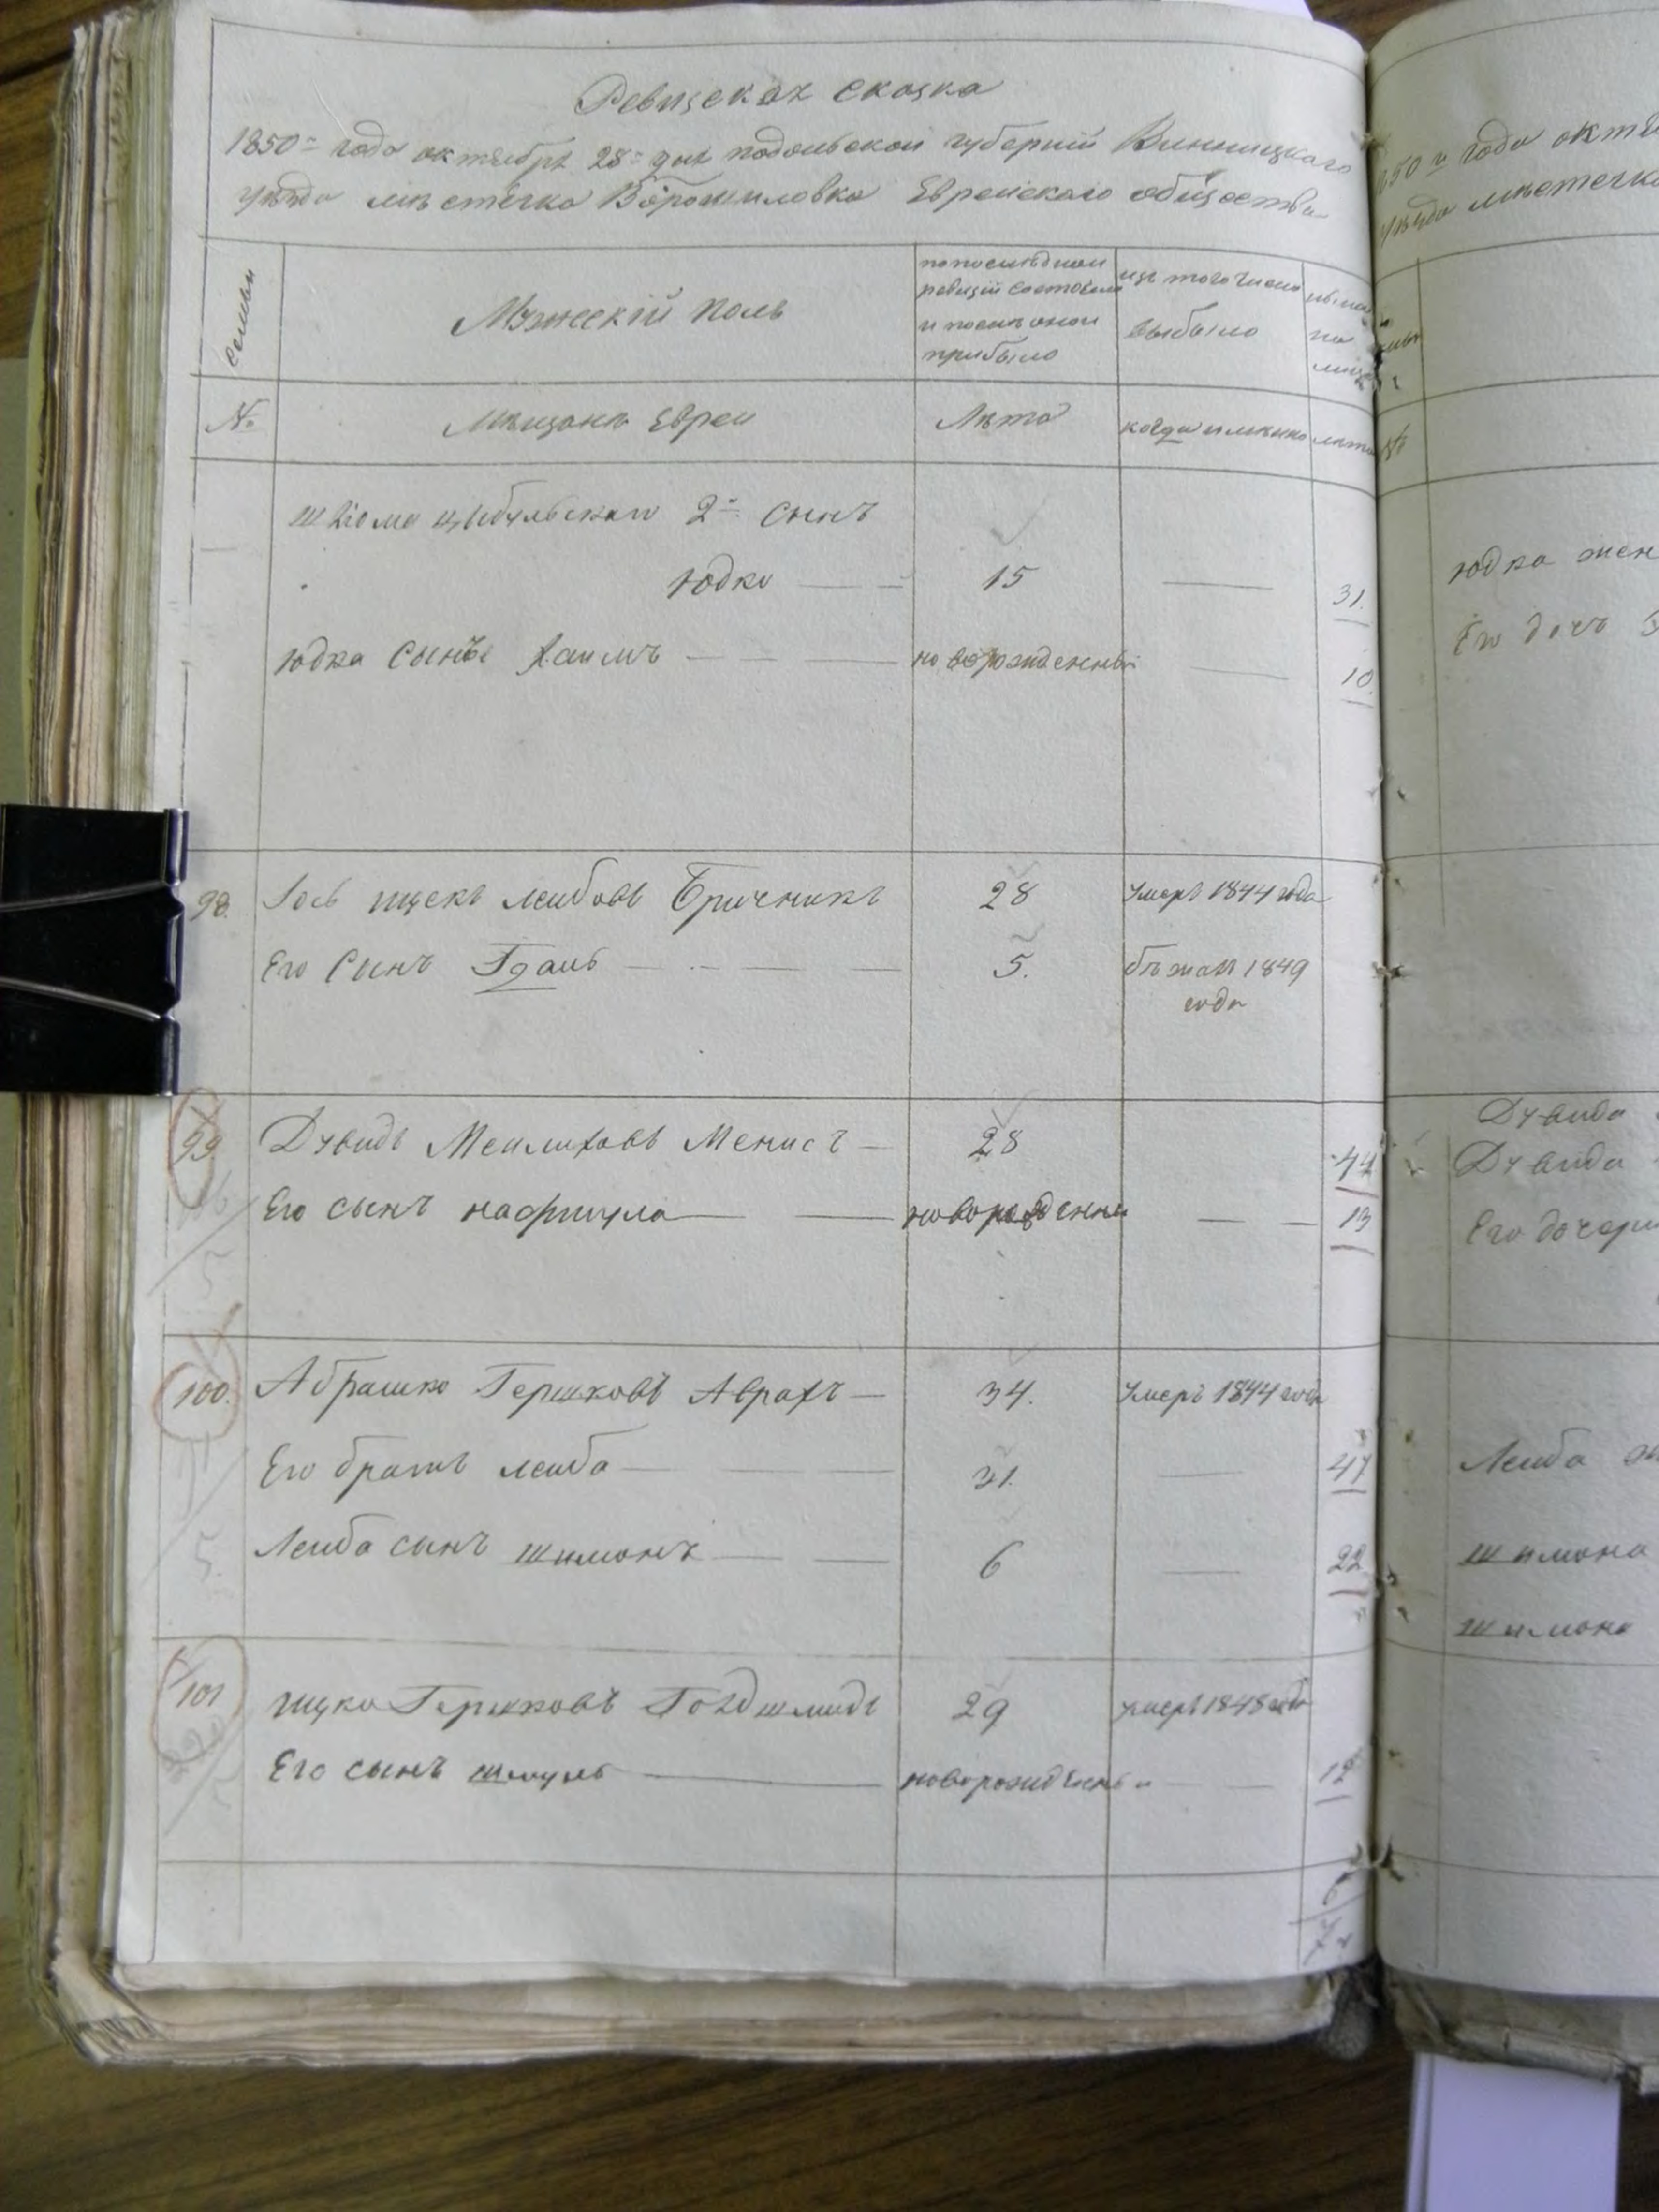 Ревизская сказка
1850 года октября 28 дня Подольской губернии Винницкого
уезда местечка Ворошиловка Еврейского общества
семьи
Мужескій полъ
по последней ревизіи состояло и после оной прибыло
изъ того числа выбыло
ныне на лицо
№
Мещане Евреи
Лета
когда именно
лета
Шлiома Цыбульского 2й сынъ
Юдко 15 31.
Юдка сынъ Хаимъ новорожденный 10.
98. Iось Ицекъ Лейбовъ Бричникъ 28 умеръ 1844 года
Его сынъ 5. бежалъ 1849
года
99 Дувидъ Меилиховъ Менис 28 44
Его сынъ Нафтула новорожденный 13
100. Абрашко Гершковъ Аврах 34. умеръ 1844 года
Его братъ Леиба 31. 41
Леиба сынъ Шимонъ 6 22
101 Ицко Гершковъ Голдшмидъ 29 умеръ 1848 года
Его сынъ Шмуль новорожденный 12
1850 года октя
уезда местечка
Юдка жен
Его дочь
Дувида
Дувида
Его дочери
Леиба
Шимона
Шимона